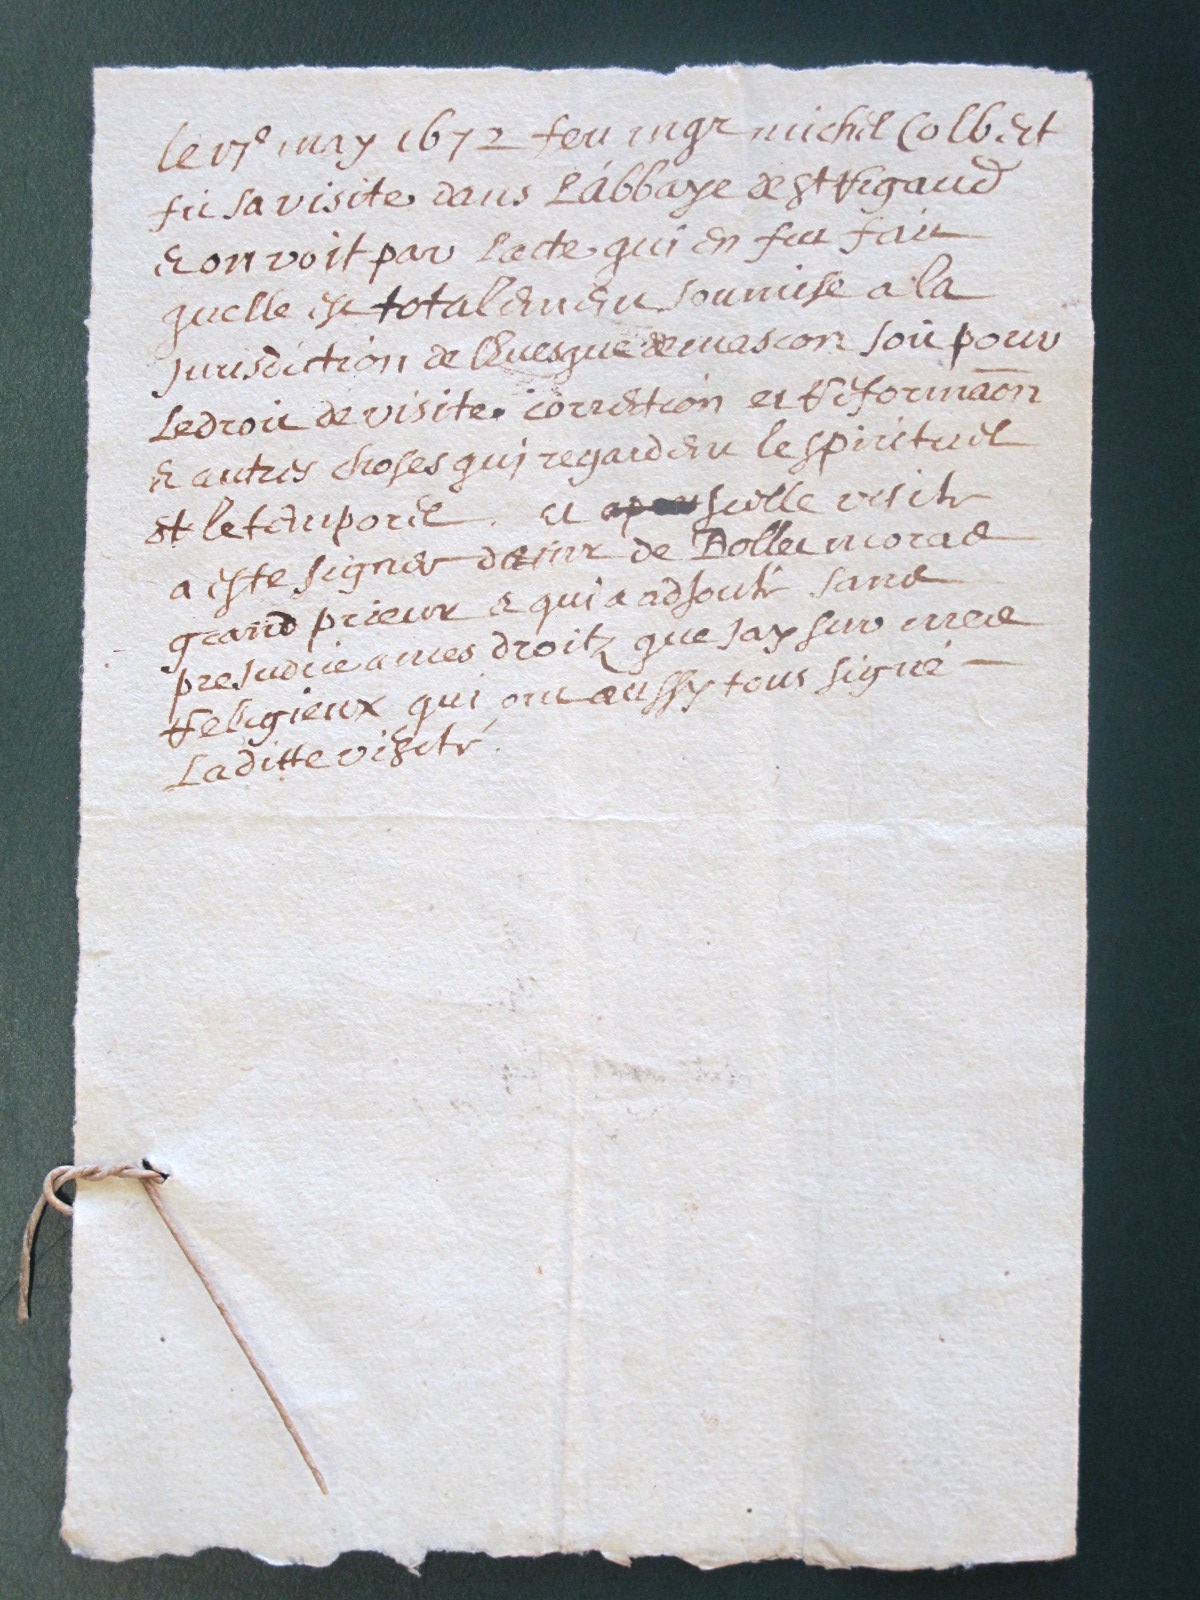 le 17e may 1672 feu mgr michel Colbert
fit sa visite dans L'abbaye de st Rigaud
& on voit par Lacte qui en fut fait
quelle est totalement soumise a la
Jurisdiction de levesque de mascon soit pour
Le droit de visite. correction et Reformaon
& autres choses qui regardent le spirituel
et le temporel. et icelle visite
a este signée de de
grand prieur & qui a adjouté sans
prejudice a mes droitz que jay sur mes
Religieux qui ont aussy tous signé
Laditte visite.